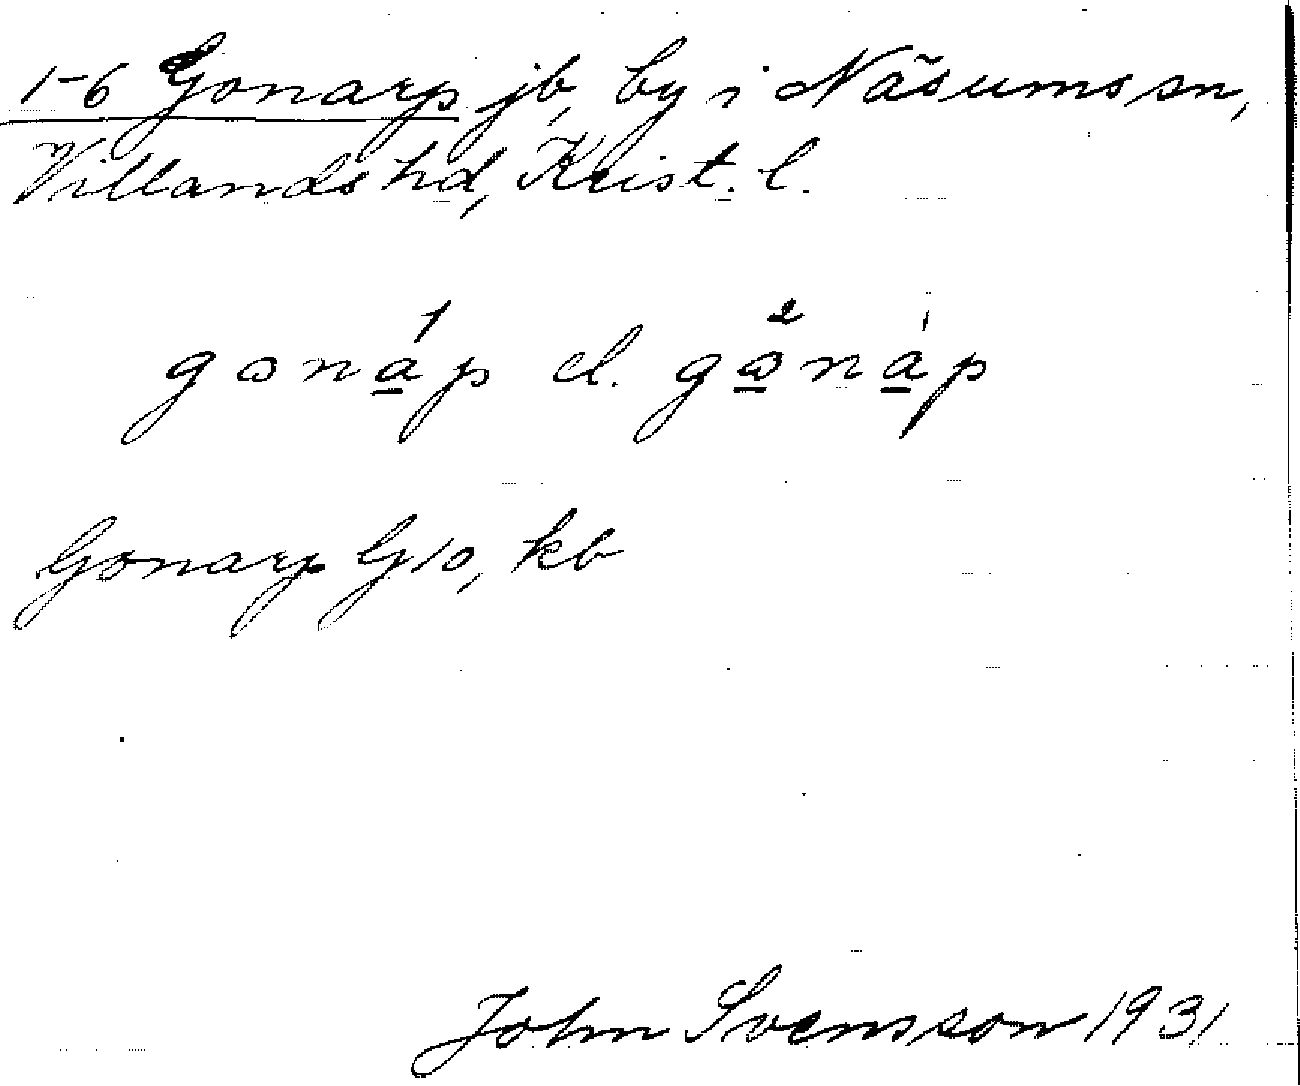 1-6 Gonarp jb, by i Näsums sn,
Villands hd, Krist. l.
gonáp el. gönáp
Gonarp G10, kb
John Svensson 1931